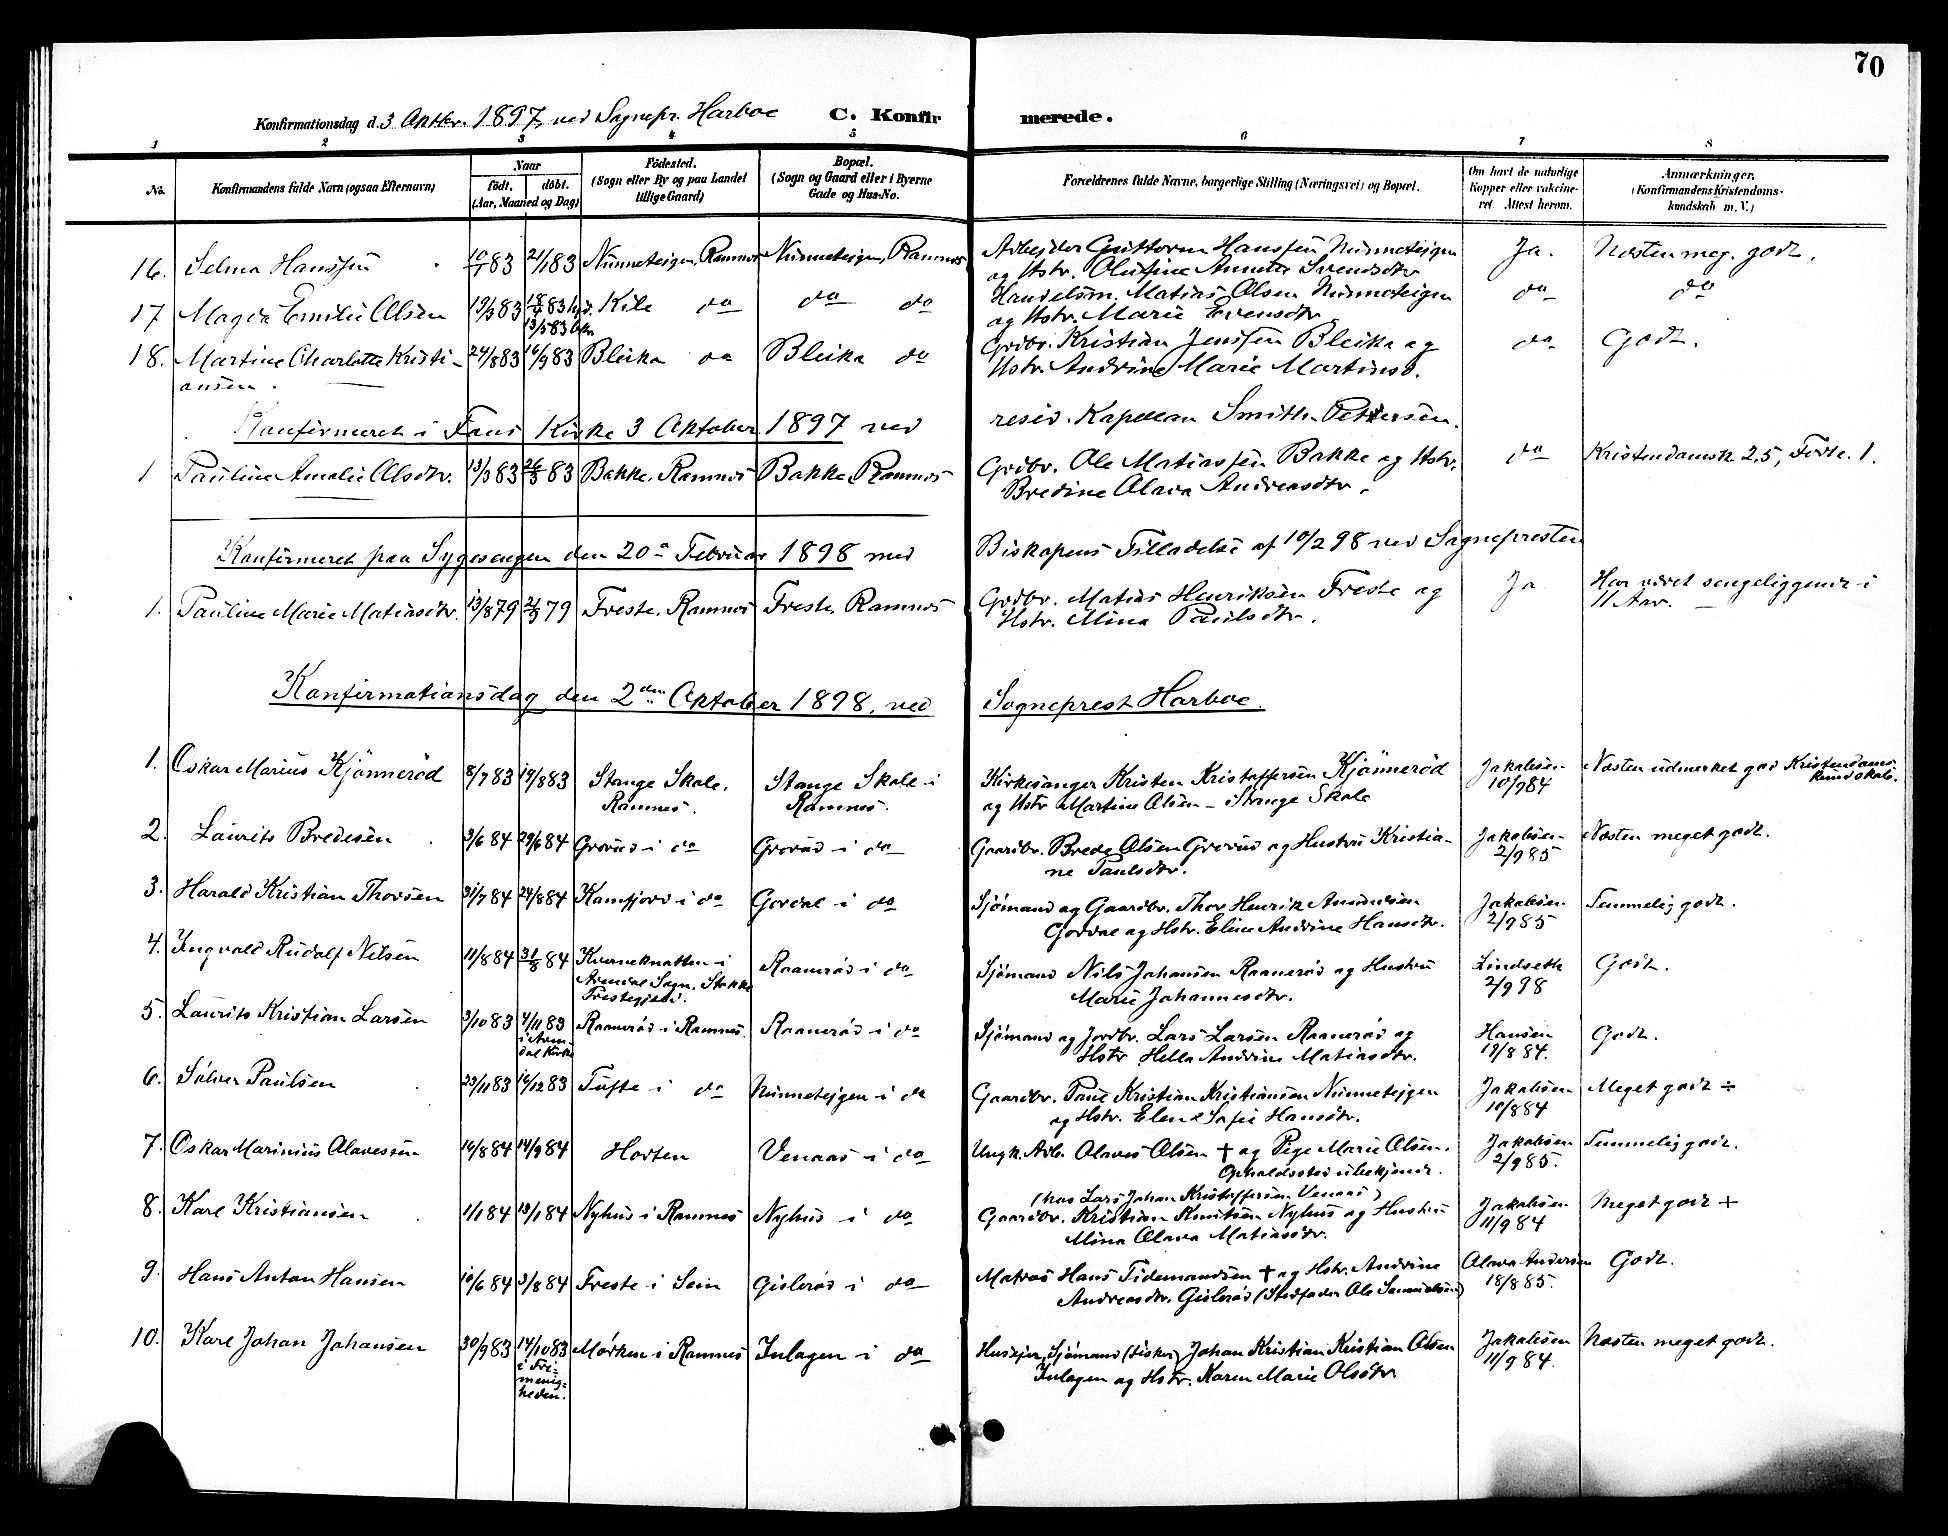 70
Konfirmationsdag d. 3 Oktbr. 1897, ved Sognepr. Harboe C. Konfirmerede.
1 2 3 4 5 6 7 8
No. Konfirmandens fulde Navn (ogsaa Efternavn) Naar født. døbt. (Aar, Maaned og Dag) Fødested. (Sogn eller By og paa Landet tillige Gaard) Bopæl. (Sogn og Gaard eller i Byerne Gade og Hus-No. Forældrenes fulde Navne, borgerlige Stilling (Næringsvei) og Bopæl. Om havt de naturlige Kopper eller vakcineret. Attest herom. Anmærkninger. (Konfirmandens Kristendomskundskab m. V.)
16. Selma Hanssen 10/1 83 21/1 83 Nunneteigen, Ramnes Nunneteigen, Ramnes Arbeider Guttorm Hanssen Nunneteigen Ja. Næsten meg. godt.
og Hstr. Olufine Annette Svendsdtr
17 Magda Emilie Olsen 19/3 83 18/4 83 hj. d. Kile do do do Handelsm. Matias Olsen Nunneteigen do do
13/5 83 bkr. og Hstr. Marie Evensdtr
18. Martine Charlotte Kristi- 24/8 83 16/9 83 Bleika do Bleika do Grdbr. Kristian Jenssen Bleika og do Godt.
ansen. Hstr. Andrine Marie Martinsd.
Konfirmeret i Fons Kirke 3 Oktober 1897 ved resid. Kapellan Smith-Pettersen.
1 Pauline Amalie Olsdtr. 13/3 83 26/3 83 Bakke, Ramnes Bakke, Ramnes Grdbr. Ole Matiassen Bakke og Hstr. do Kristendomsk. 2.5, Forh. 1.
Bredine Olava Andreasdtr.
Konfirmeret paa Sygesengen den 20de Februar 1898 med Biskopens Tilladelse af 10/2 98 ved Sognepresten
1. Pauline Marie Matiasdtr. 13/8 79 21/9 79 Freste, Ramnes Freste, Ramnes Grdbr. Matias Henriksen Freste og Ja Har været sengeliggende i
Hstr. Mina Paulsdtr. 11 Aar.
Konfirmationsdag den 2den Oktober 1898, ved Sogneprest Harboe.
1. Oskar Marius Kjønnerød 8/7 83 19/8 83 Stange Skole, Stange Skole i Kirkesanger Kristen Kristoffersen Kjønnerød Jakobsen Næsten udmerket god Kristendoms-
Ramnes. Ramnes. og Hstr Martine Olsen - i Stange Skole 10/9 84 kundskab.
2. Laurits Bredesen 3/6 84 29/6 84 Grorud i do Grorud i do Gaardbr. Brede Olsen Grorud og Hustru Kristia- Jakobsen Næsten meget godt.
ne Paulsdtr. 2/9 85
3. Harald Kristian Thorsen 31/7 84 24/8 84 Kamfjord i do Gordal i do Sjømand og Gaardbr. Thor Henrik Amundsen Jakobsen Temmelig godt.
Gordal og Hstr. Eline Andrine Hansdtr. 2/9 85
4. Ingvald Rudolf Nilsen 11/8 84 31/8 84 Kverneknatten i Raanerød i do Sjømand Nils Johansen Raanerød og Hustru Lindseth Godt.
Arendal Sogn, Stokke Prestegjeld. Marie Johannesdtr. 2/9 98
5. Laurits Kristian Larsen 3/10 83 4/11 83 Raanerød i Ramnes. Raanerød i do Sjømand og Jordbr. Lars Larsen Raanerød og Hansen Godt.
i Arendal Kirke Hstr Hella Andrine Matiasdtr. 19/8 84.
6. Sølver Paulsen 23/11 83 16/12 83 Tufte i do Nunneteigen i do Gaardbr. Paul Kristian Kristiansen Nunneteigen Jakobsen Meget godt ÷
og Hstr. Elen Sofie Hansdtr. 10/8 84
7. Oskar Marinius Olavessen 16/8 84 14/9 84 Horten Venaas i do Ungk. Arb. Olaves Olsen † og Pige Marie Olsen. Jakobsen Temmelig godt.
Opholdssted ubekjendt. 2/9 85.
(hos Lars Johan Kristoffersen Venaas)
8. Karl Kristiansen 1/1 84 13/1 84 Nyhus i Ramnes Nyhus i do Gaardbr. Kristian Knutsen Nyhus og Hustru Jakobsen Meget godt +
Mina Olava Matiasdtr. 11/9 84
9. Hans Anton Hansen 10/6 84 3/8 84 Freste i Sem Gislerød i do Matros Hans Tidemandsen † og Hstr. Andrine Olava Andersen Godt.
Andreasdtr. Gislerød (Stedfader Ole Samuelsen) 18/8 85.
10. Karl Johan Johansen 30/9 83 14/10 83 Mørken i Ramnes Inlagen i do Huseier, Sjømand (fisker) Johan Kristian Kristian Olsen Jakobsen Næsten meget godt.
i Fri- Inlagen og Hstr. Karen Marie Olsdtr 11/9 84.
menig-
heden.